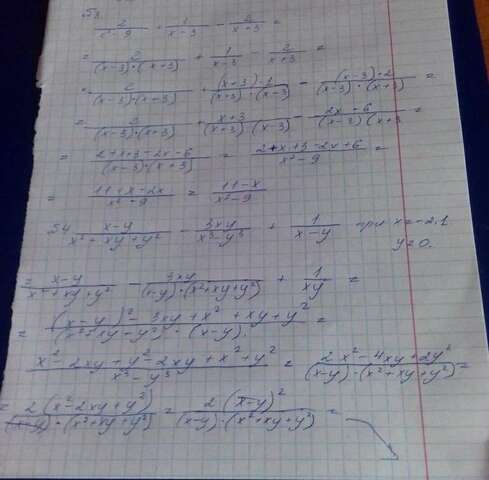 №3
2/(x²-9) + 1/(x-3) - 2/(x+3) =
= 2/((x-3)·(x+3)) + 1/(x-3) - 2/(x+3) =
= 2/((x-3)·(x+3)) + ((x+3)·1)/((x+3)·(x-3)) - ((x-3)·2)/((x-3)·(x+3)) =
= 2/((x-3)·(x+3)) + (x+3)/((x+3)·(x-3)) - (2x+6)/((x-3)(x+3 =
= (2+x+3-2x-6)/((x-3)·(x+3)) = (2+x+3-2x+6)/(x²-9) =
= (11+x-2x)/(x²-9) = (11-x)/(x²-9)
№4 (x-y)/(x²+xy+y²) - 3xy/(x³-y³) + 1/(x-y) при x=-2,1
y=0.
= (x-y)/(x²+xy+y²) - 3xy/((x-y)·(x²+xy+y²)) + 1/(xy) =
= ((x-y)²-3xy+x²+xy+y²)/((x²+xy+y²)·(x-y)) =
(x²-2xy+y²-2xy+x²+y²)/(x³-y³) = (2x²-4xy+2y²)/((x-y)·(x²+xy+y²)) =
= 2(x²-2xy+y²)/((x-y)·(x²+xy+y²)) = 2(x-y)²/((x-y)·(x²+xy+y²)) =